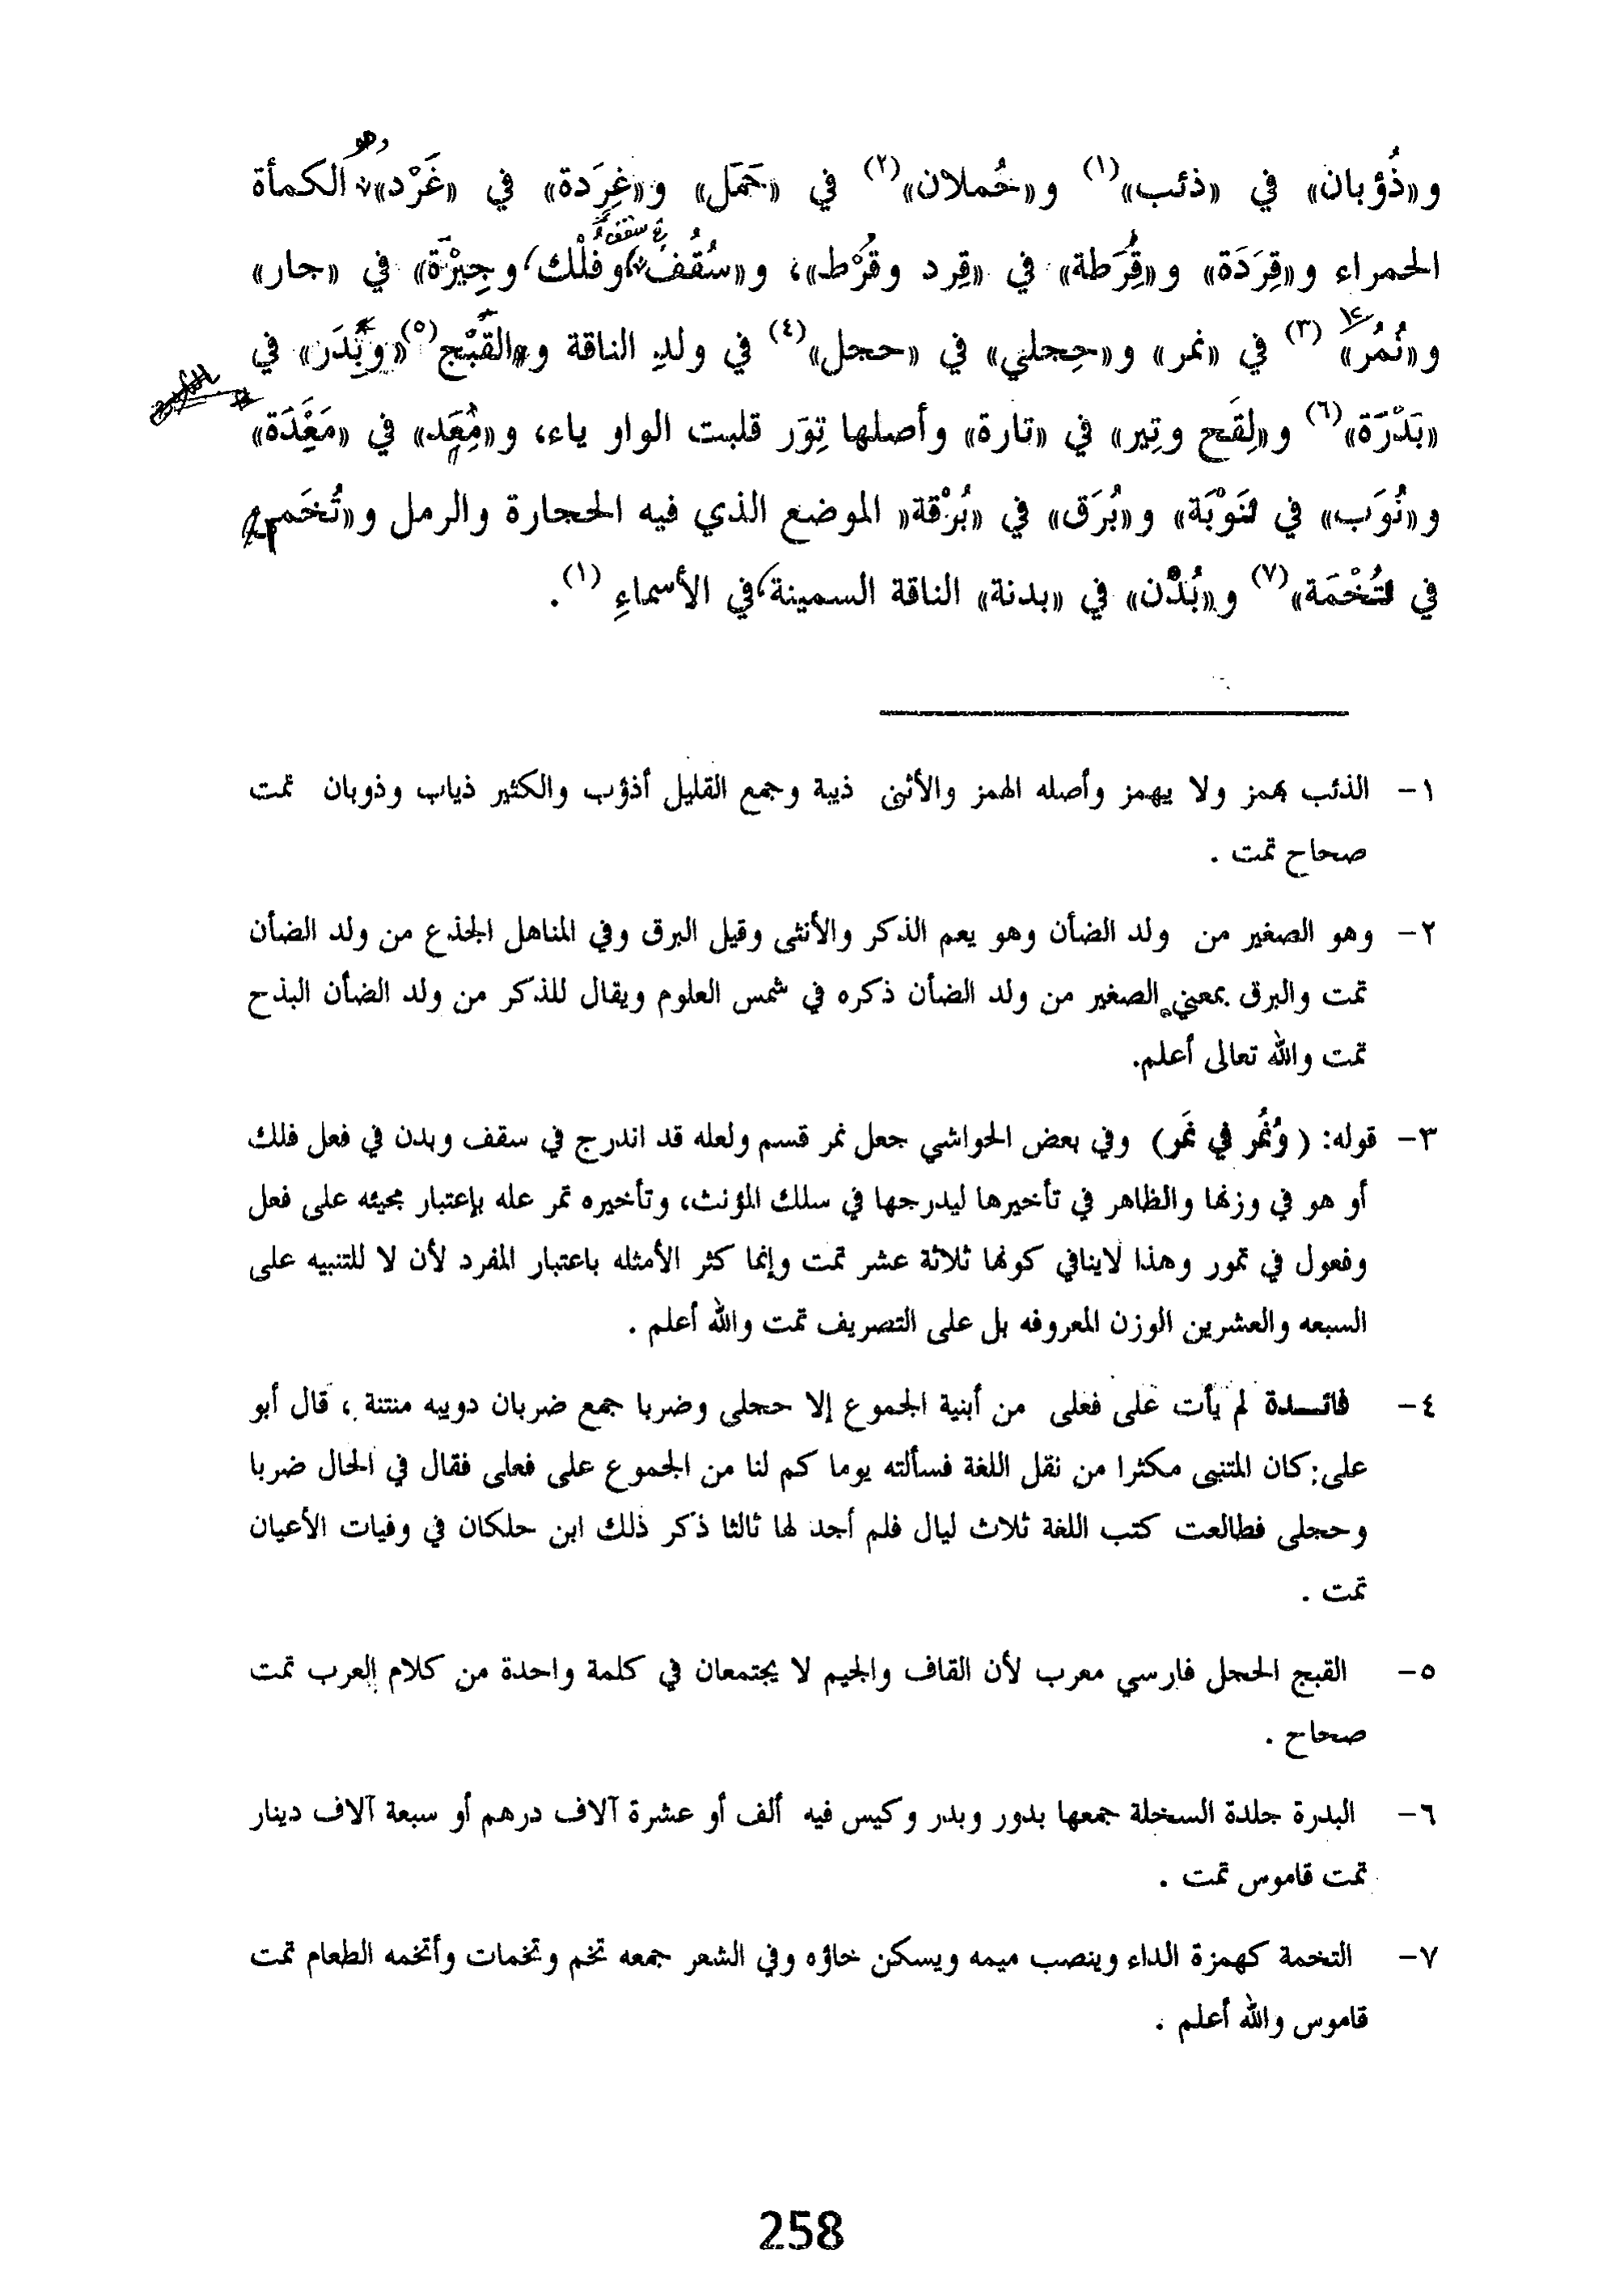 و«ذُؤبان» في «ذئب»(١) و«حُملان»(٢) في «حَمَل» و«غِرَدة» في «غَرْد» وهو الكمأة
الحمراء و«قِرَدَة» و«قِرَطة» في «قِرد وقُرْط»، و«سُقُف» في سقف و«فُلْك» و«جِيْرَة» في «جار»
و«نُمُر»(٣) في «نمر» و«حِجلي» في «حجل»(٤) في ولدِ الناقة و«القَبْج»(٥) و«بِدَر» في
«بَدْرَة»(٦) و«لِقَح وتِير» في «تارة» وأصلها تِوَر قلبت الواو ياء، و«مِعَد» في «مَعِدَة»
و«نُوَب» في «نَوْبَة» و«بُرَق» في «بُرْقة» الموضع الذي فيه الحجارة والرمل و«تُخَم»
في «تُخْمَة»(٧) و«بُدْن» في «بدنة» الناقة السمينة في الأسماءِ (١).
١- الذئب يهمز ولا يهمز وأصله الهمز والأثنى ذيبة وجمع القليل أذؤب والكثير ذياب وذوبان تمت
صحاح تمت .
٢- وهو الصغير من ولد الضأن وهو يعم الذكر والأنثى وقيل البرق وفي المناهل الجذع من ولد الضأن
تمت والبرق بمعني الصغير من ولد الضأن ذكره في شمس العلوم ويقال للذكر من ولد الضأن البذح
تمت والله تعالى أعلم.
٣- قوله: ( وُنمُر في نَمر) وفي بعض الحواشي جعل نمر قسم ولعله قد اندرج في سقف وبدن في فعل فلك
أو هو في وزنها والظاهر في تأخيرها ليدرجها في سلك المؤنث، وتأخيره تمر عله بإعتبار مجيئه على فعل
وفعول في تمور وهذا لاينافي كونها ثلاثة عشر تمت وإنما كثر الأمثله باعتبار المفرد لأن لا للتنبيه على
السبعه والعشرين الوزن المعروفه بل على التصريف تمت والله أعلم .
٤- فائـــدة لم يأت على فعلى من أبنية الجموع إلا حجلى وضربا جمع ضربان دويبه منتنة ، قال أبو
على: كان المتنبى مكثرا من نقل اللغة فسألته يوما كم لنا من الجموع على فعلى فقال في الحال ضربا
وحجلى فطالعت كتب اللغة ثلاث ليال فلم أجد لها ثالثا ذكر ذلك ابن حلكان في وفيات الأعيان
تمت .
٥- القبج الحجل فارسي معرب لأن القاف والجيم لا يجتمعان في كلمة واحدة من كلام العرب تمت
صحاح .
٦- البدرة جلدة السخلة جمعها بدور وبدر وكيس فيه ألف أو عشرة آلاف درهم أو سبعة آلاف دينار
تمت قاموس تمت .
٧- التخمة كهمزة الداء وينصب ميمه ويسكن خاؤه وفي الشعر جمعه تخم وتخمات وأتخمه الطعام تمت
قاموس والله أعلم .
258